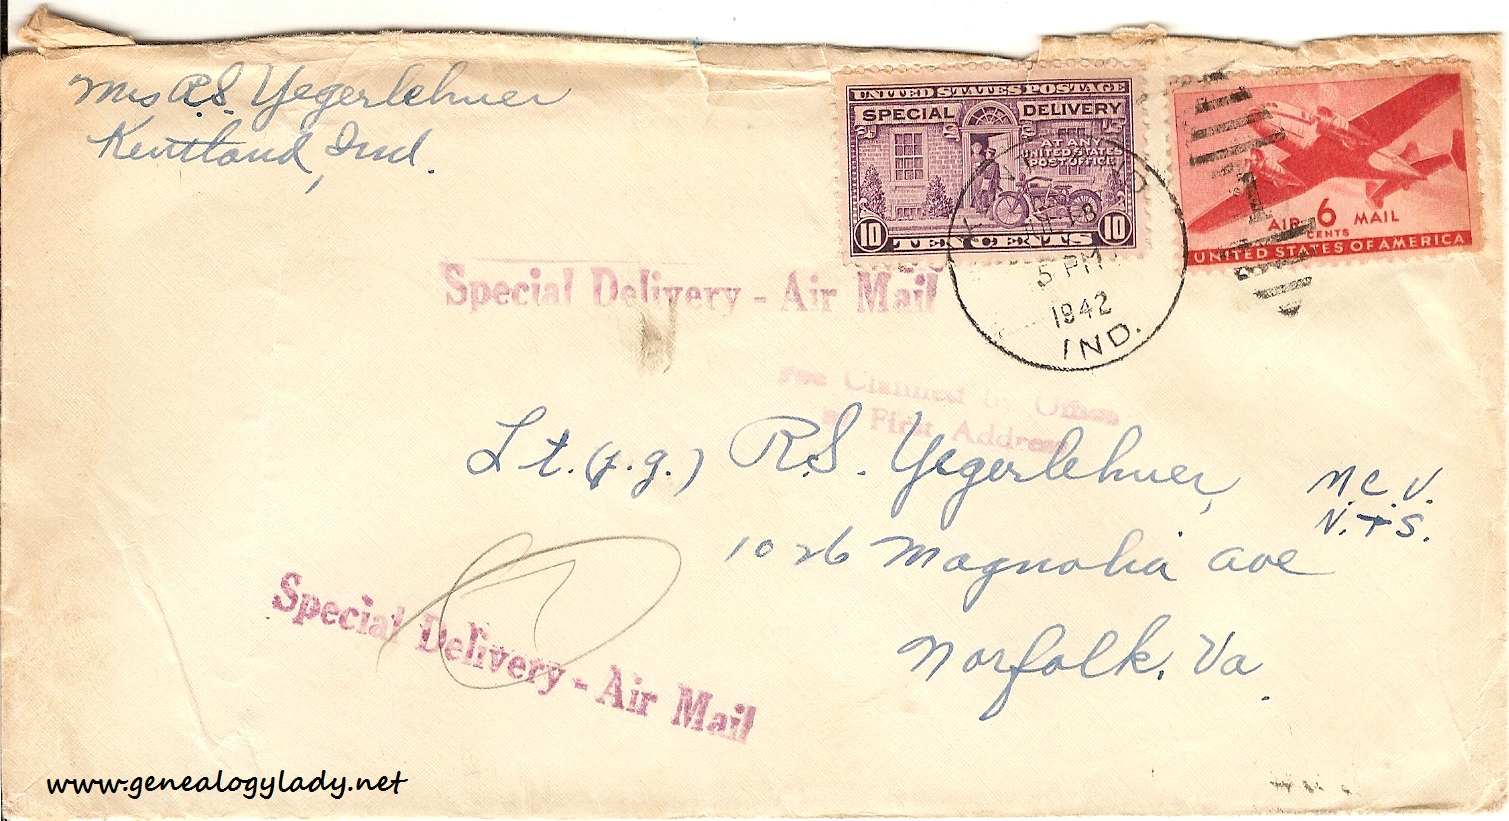 Mrs R.S. Yegerlehner
Kentland, Ind.
UNITED STATES POSTAGE
SPECIAL DELIVERY
AT ANY
UNITED STATES
POST OFFICE
10 TEN CENTS 10
AIR 6 MAIL
CENTS
UNITED STATES OF AMERICA
1
18
5 PM
1942
IND.
Special Delivery - Air Mail
Fee Claimed by Office
at First Address
Lt. (j.g.) R.S. Yegerlehner,
M.C.V.
N.T.S.
1026 Magnolia Ave
Norfolk, Va.
Special Delivery - Air Mail
www.genealogylady.net